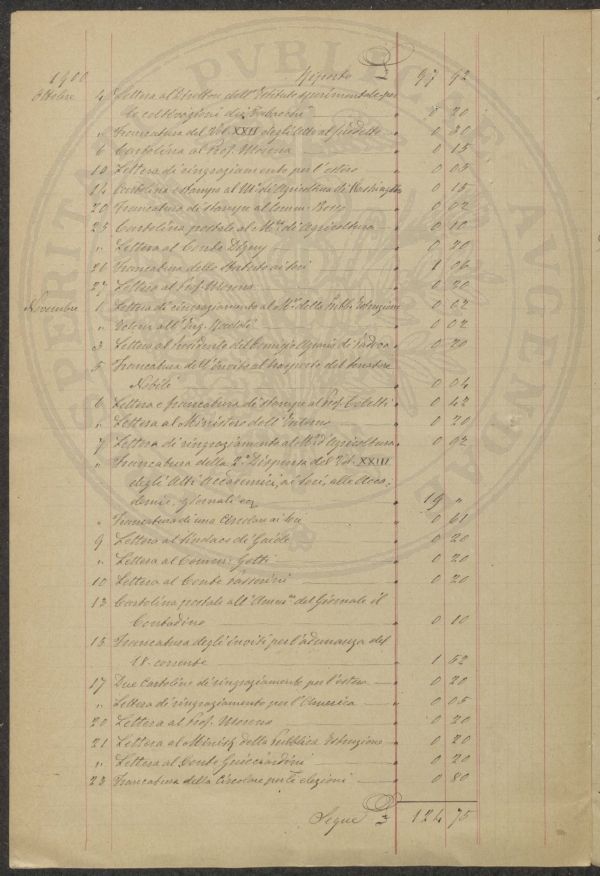 1900 Riporto £ 97 92
Ottobre 4 Lettera al Direttore dell'Istituto sperimentale per
le coltivazioni dei Tabacchi " 0 20
" Francatura del Vol. XXII degli Atti al suddetto " 0 30
6 Cartolina al Prof. Morena " 0 15
10 Lettera di ringraziamento per l'estero " 0 05
14 Cartolina e stampe al M. di Agricoltura di Washington " 0 15
20 Francatura di stampe al Comm. " 0 02
25 Cartolina postale al M. di Agricoltura " 0 10
" Lettera al Conte Digny " 0 20
26 Francatura dello Statuto ai soci " 1 06
27 Lettera al Prof. Moreno " 0 20
Novembre 1 Lettera di ringraziamento al M. della Pubb. Istruzione " 0 02
" all'Ing. " 0 02
3 Lettera al Presidente del Comizio Agrario di Padova " 0 20
5 Francatura dell'Invito al trasporto del Senatore
Nobili " 0 04
6 Lettera e francatura di stampe al Prof. " 0 42
" Lettera al Ministero dell'Interno " 0 20
7 Lettera di ringraziamento al M. d'Agricoltura "
" Francatura della 2a Dispensa del Vol. XXIII
degli Atti Accademici, ai Soci, alle Acca-
demie, giornali ecc " 19 "
" Francatura di una Circolare ai Soci " 0 61
9 Lettera al Sindaco di " 0 20
" Lettera al Comm. Gotti " 0 20
10 Lettera al Conte Passerini " 0 20
13 Cartolina postale all'Amm.ne del Giornale il
Contadino " 0 10
15 Francatura degli inviti per l'adunanza del
18 corrente " 1 52
17 Due Cartoline di ringraziamento per l'estero " 0 20
" Lettera di ringraziamento per l'America " 0 05
20 Lettera al Prof. Moreno " 0 20
21 Lettera al Minist. della Pubblica Istruzione " 0 20
" Lettera al Conte Guicciardini " 0 20
23 Francatura della Circolare per le elezioni " 0 80
Segue £ 124 75